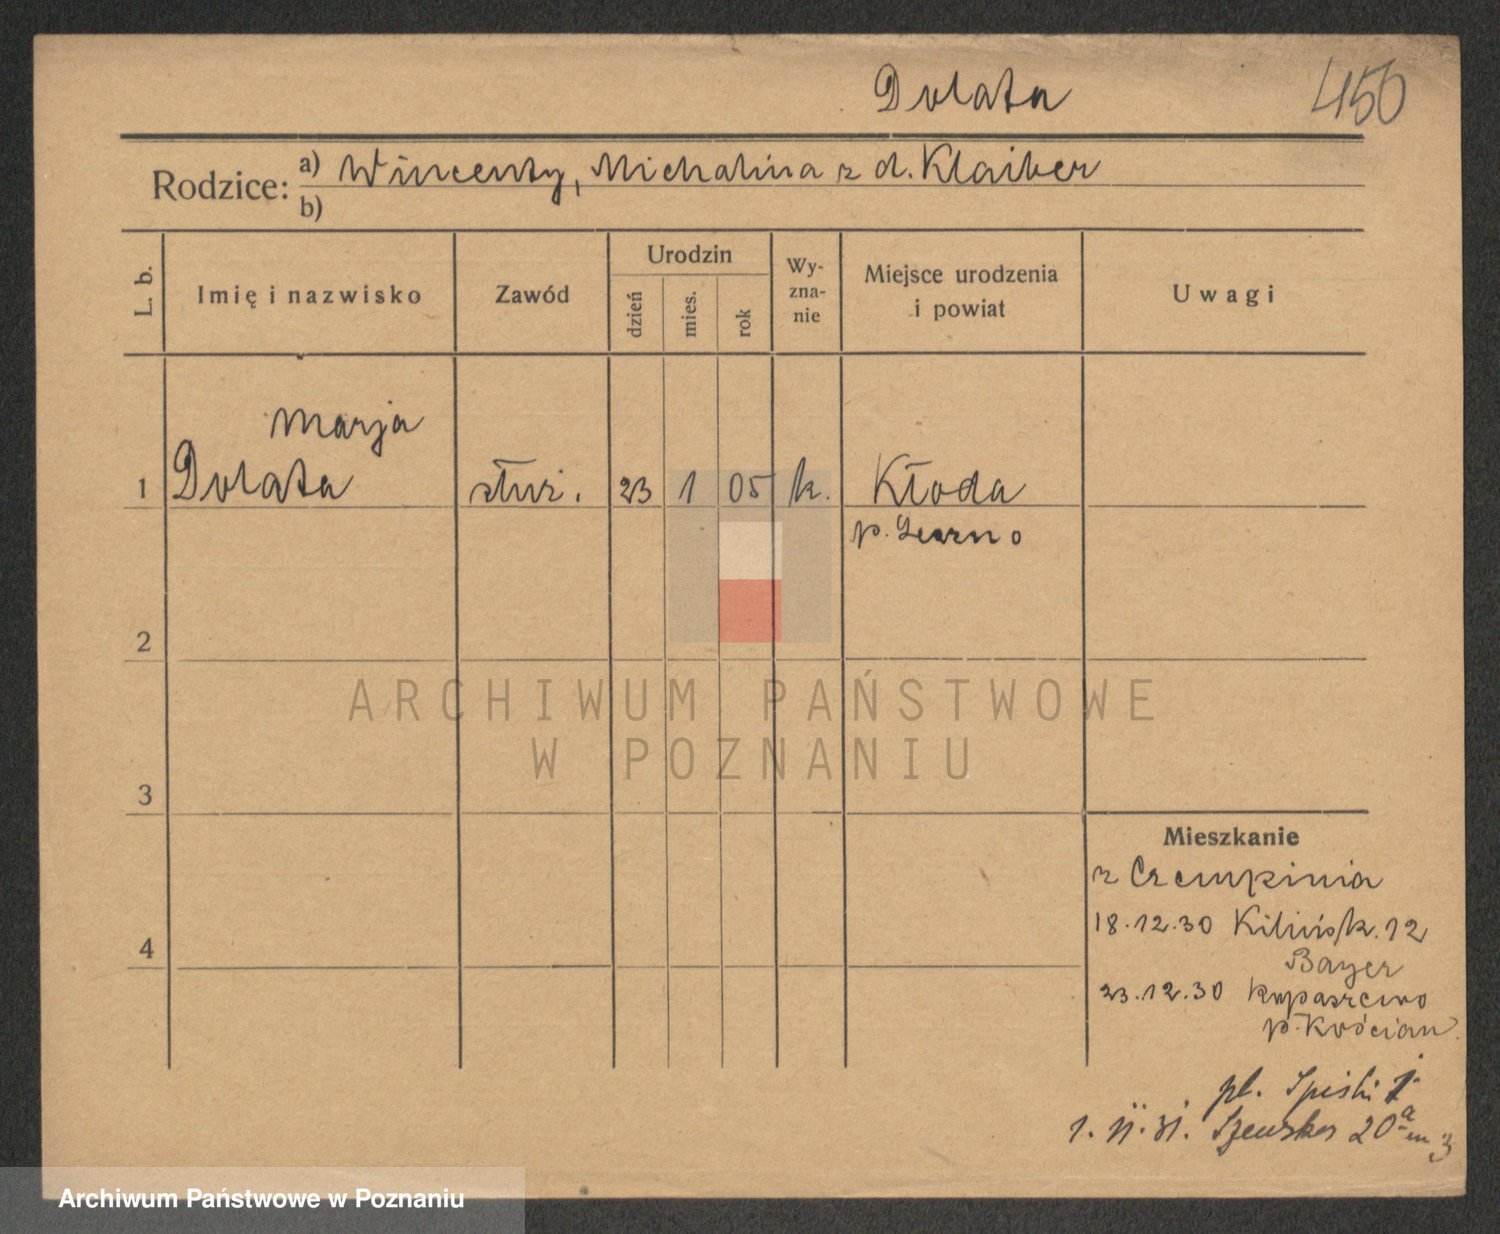 Dolata
450
Rodzice: a) Wincenty, Michalina z d. Klaiber
b)
L. b.
Imię i nazwisko
Zawód
Urodzin
dzień
mies.
rok
Wy-
zna-
nie
Miejsce urodzenia
i powiat
Uwagi
Marja
1 Dolata służ. 23 1 05 k. Kłoda
p.
2
ARCHIWUM PAŃSTWOWE
W POZNANIU
3
Mieszkanie
z Czempinia
4
18.12.30 Kilińsk. 12
Bayer
23.12.30
p. Kościan
pl. Spiski 1
1. II. 31. Szewska 20a m 3
Archiwum Państwowe w Poznaniu